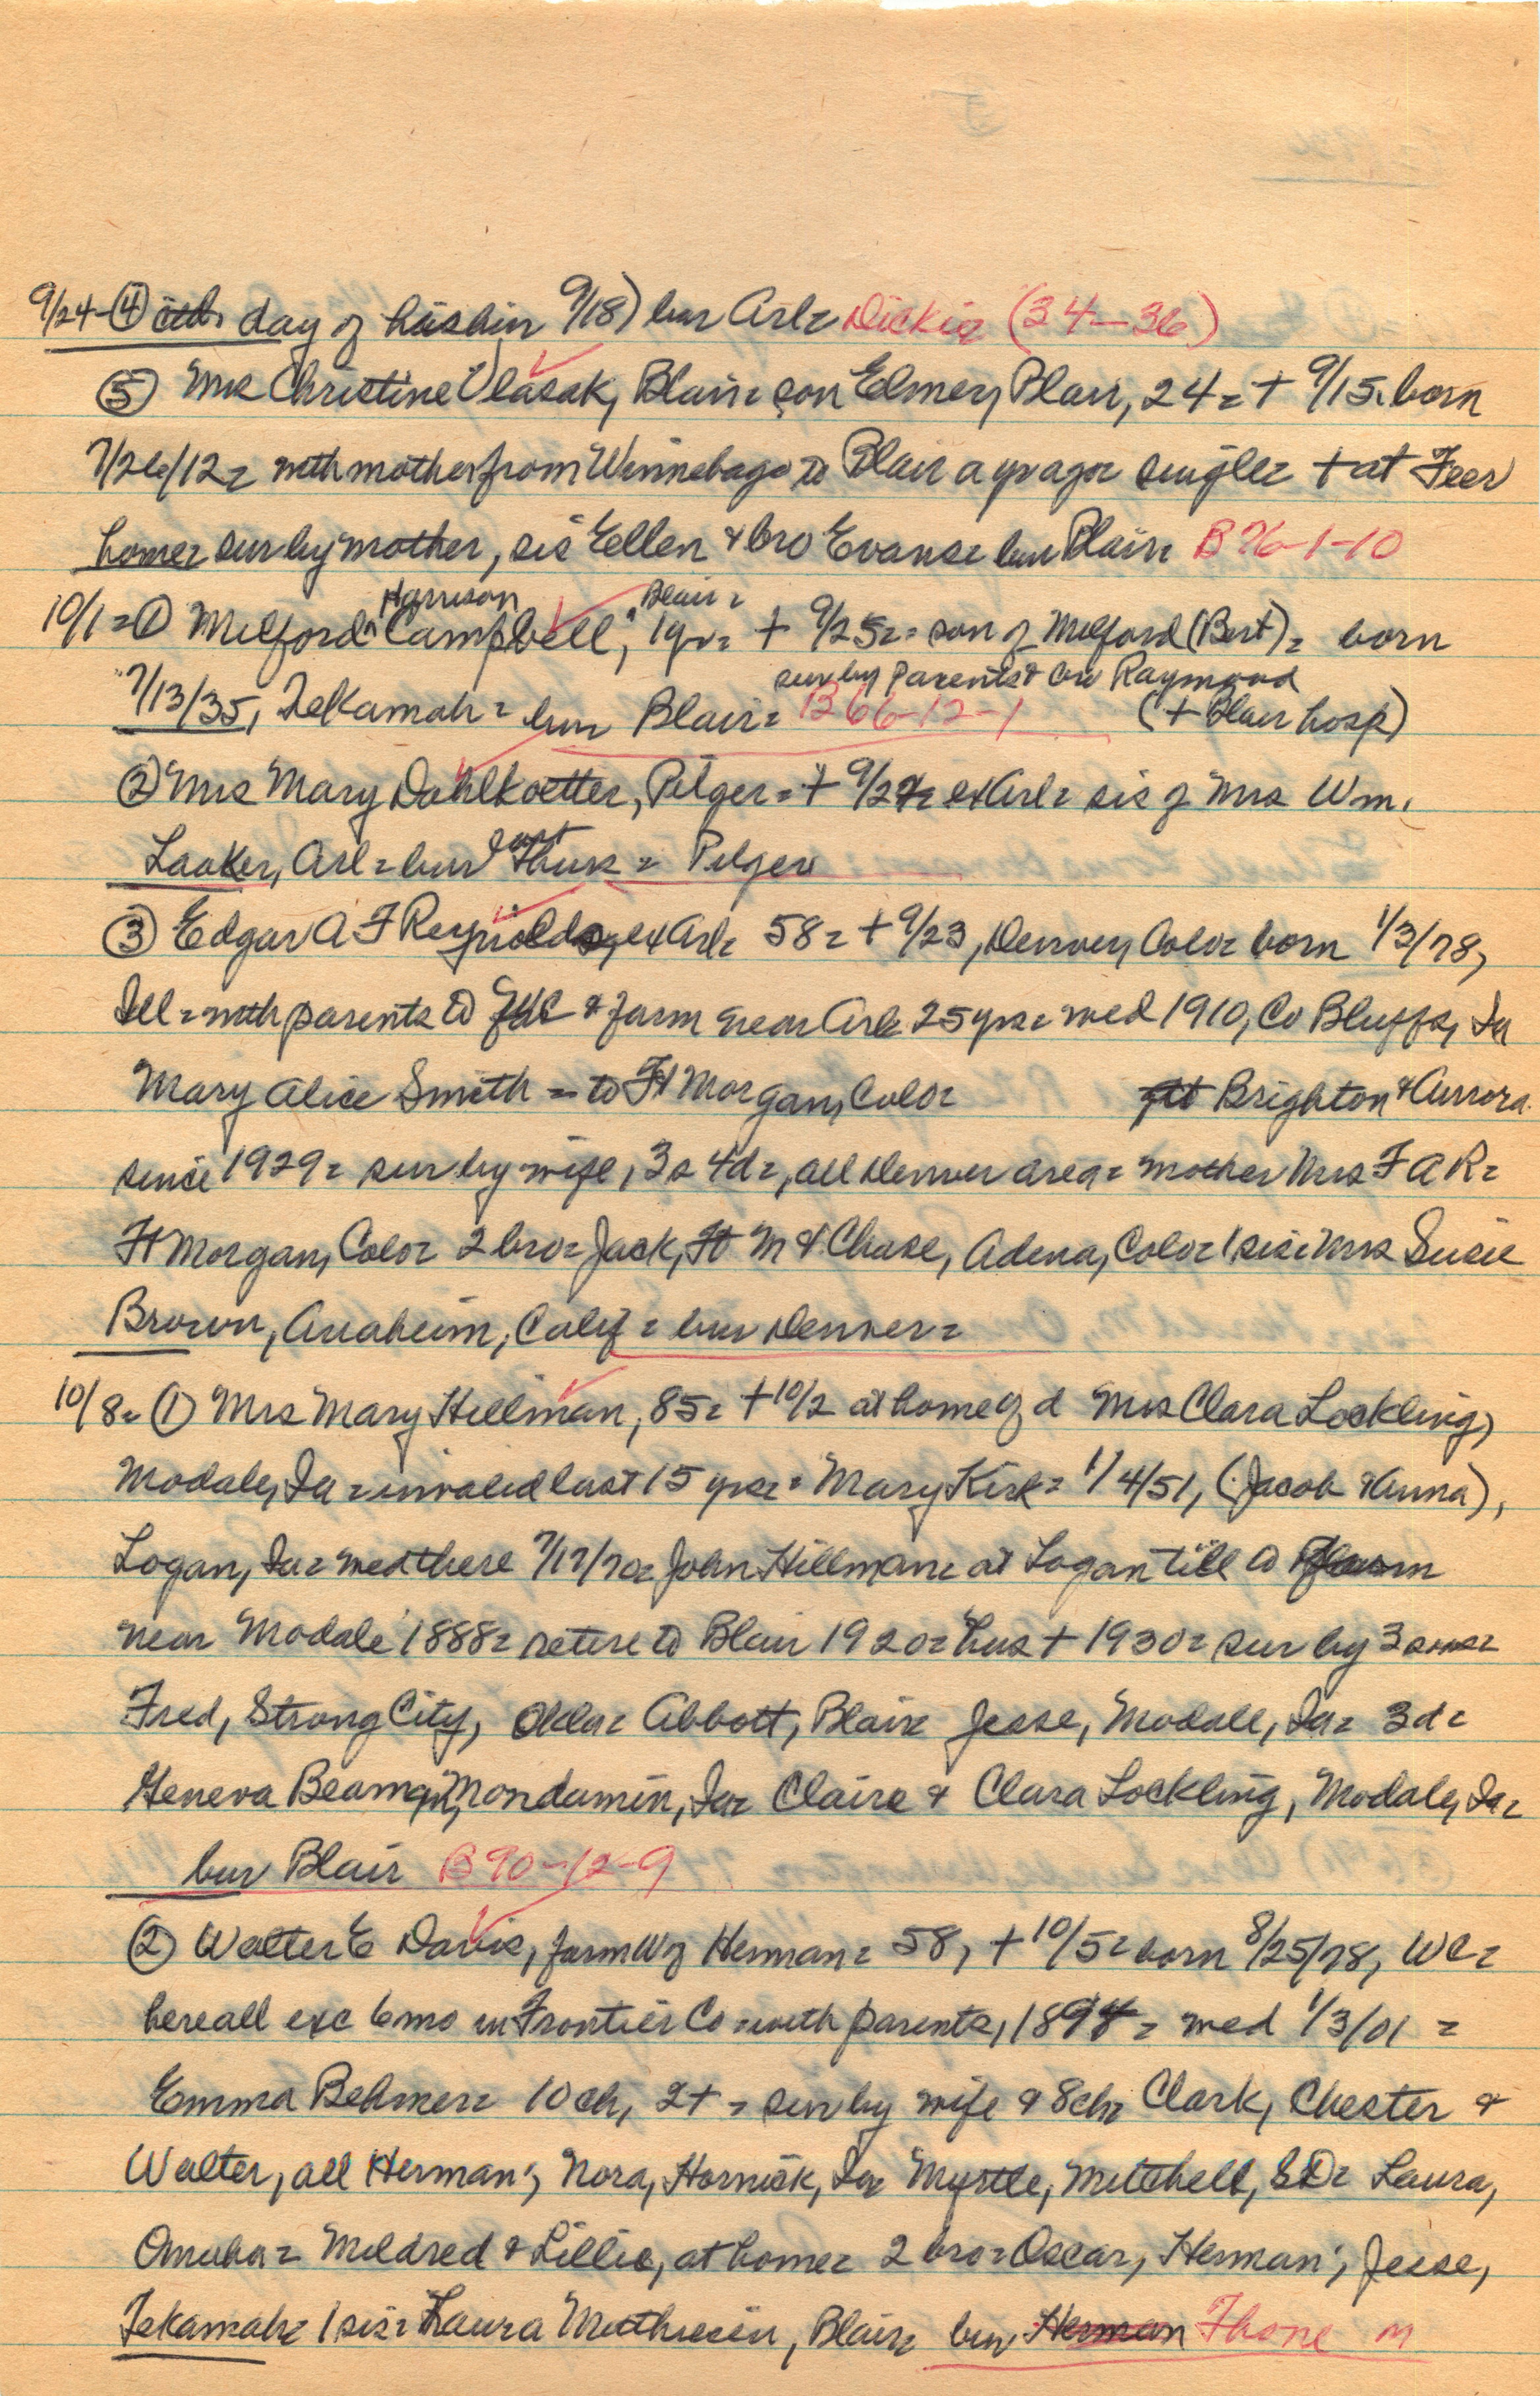 9/24-④ day of his bir 9/18) bur Arl= Dickie (34-36)
⑤ Mrs Christine Vlasak, Blair= son Elmer, Blair, 24= + 9/15. born
7/26/12= with mother from Winnebago to Blair a yr ago= single= + at Feer
home= sur by mother, sis Ellen & bro Evans= bur Blair= B 76-1-10
10/1= ① Milford Harrison Campbell, Blair= 1 yr= + 9/25= son of Milford (Bert)= born
7/13/35, Tekamah= bur Blair= B66-12-1 sur by parents & bro Raymond (+ Blair hosp)
② Mrs Mary Dahlkoetter, Pilger= + 9/27= ex Arl= sis of Mrs Wm.
Laaker, Arl= bur Thurs= Pilger
③ Edgar A F Reynolds, ex Arl= 58= + 9/23, Denver, Colo= born 1/3/78,
Ill= with parents to & farm near Arl= 25 yrs= med 1910, Co Bluffs, Ia
Mary Alice Smith= to Ft Morgan, Colo= Brighton & Aurora
since 1929= sur by wife, 3s 4d=, all Denver area= mother Mrs F A R=
Ft Morgan, Colo= 2 bro= Jack, Ft M & Chase, Adena, Colo= 1 sis= Mrs Susie
Brown, Anaheim, Calif= bur Denver=
10/8= ① Mrs Mary Hillman, 85= + 10/2 at home of d Mrs Clara Lockling,
Modale, Ia= invalid last 15 yrs= Mary Kirk= 1/4/51, (Jacob & Anna),
Logan, Ia= med there 7/17/70= John Hillman= at Logan till to farm
near Modale 1888= retire to Blair 1920= hus + 1930= sur by 3 sons=
Fred, Strong City, Okla= Abbott, Blair= Jesse, Modale, Ia= 3d=
Geneva Beamen, Mondamin, Ia= Claire & Clara Lockling, Modale, Ia=
bur Blair B90-12-9
② Walter E Davis, farm W of Herman= 58, + 10/5= born 8/25/78, WC=
here all exc 6 mo in Frontier Co= with parents, 1894= med 1/3/01=
Emma Behmer= 10 ch, 2+= sur by wife & 8 ch= Clark, Chester &
Walter, all Herman; Nora, Hornick, Ia= Myrtle, Mitchell, SD= Laura,
Omaha= Mildred & Lillie, at home= 2 bro= Oscar, Herman; Jesse,
Tekamah= 1 sis= Laura Mathiesen, Blair= bur Herman Fhone m